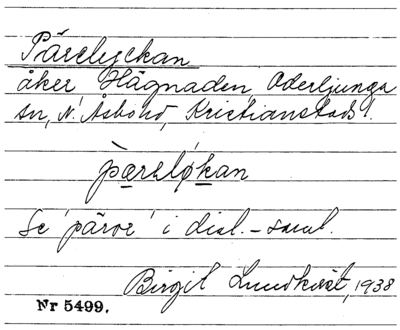 Pärelyckan
åker Hägnaden, Oderljunga
sn, N. Åsbo hd, Kristianstads l.
pæreløkan
Se 'päror' i dial.-saml.
Birgit Lundkvist, 1938
Nr 5499.